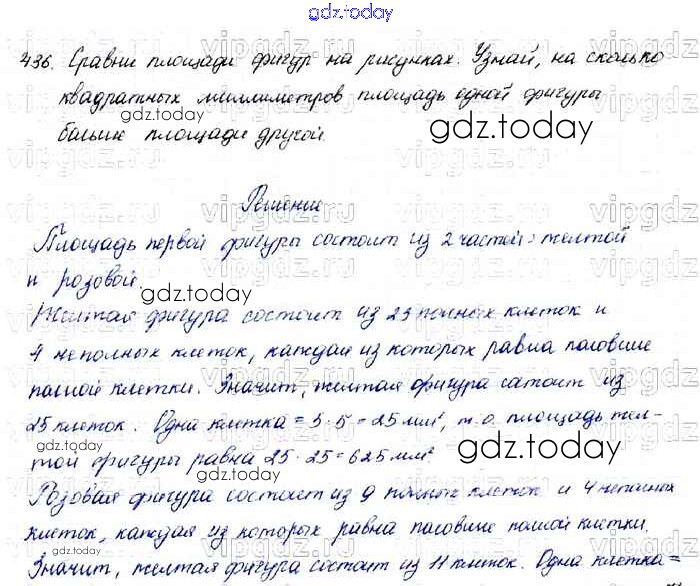 gdz.today
436. Сравни площади фигур на рисунках. Узнай, на сколько
квадратных миллиметров площадь одной фигуры
больше площади другой.
gdz.today
Решение
Площадь первой фигуры состоит из 2 частей: желтой
и розовой.
gdz.today
Желтая фигура состоит из 23 полных клеток и
4 неполных клеток, каждая из которых равна половине
полной клетки. Значит, желтая фигура состоит из
25 клеток. Одна клетка = 5·5 = 25 мм², т.о. площадь жел-
той фигуры равна 25·25=625 мм²
gdz.today
gdz.today
Розовая фигура состоит из 9 полных клеток и 4 неполных
клеток, каждая из которых равна половине полной клетки.
Значит, желтая фигура состоит из 11 клеток. Одна клетка=
vipgdz.ru